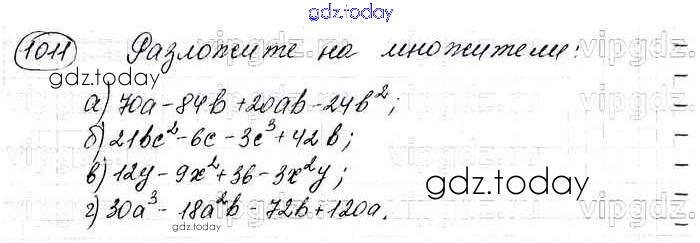 gdz.today
1011 Разложите на множители:
gdz.today
а) 70a - 84b + 20ab - 24b²;
б) 21bc² - 6c - 3c³ + 42b;
в) 12y - 9x² + 36 - 3x²y;
gdz.today
г) 30a³ - 18a²b - 72b + 120a.
gdz.today
vipgdz.
vipgdz.
vipgdz.
vipgdz.